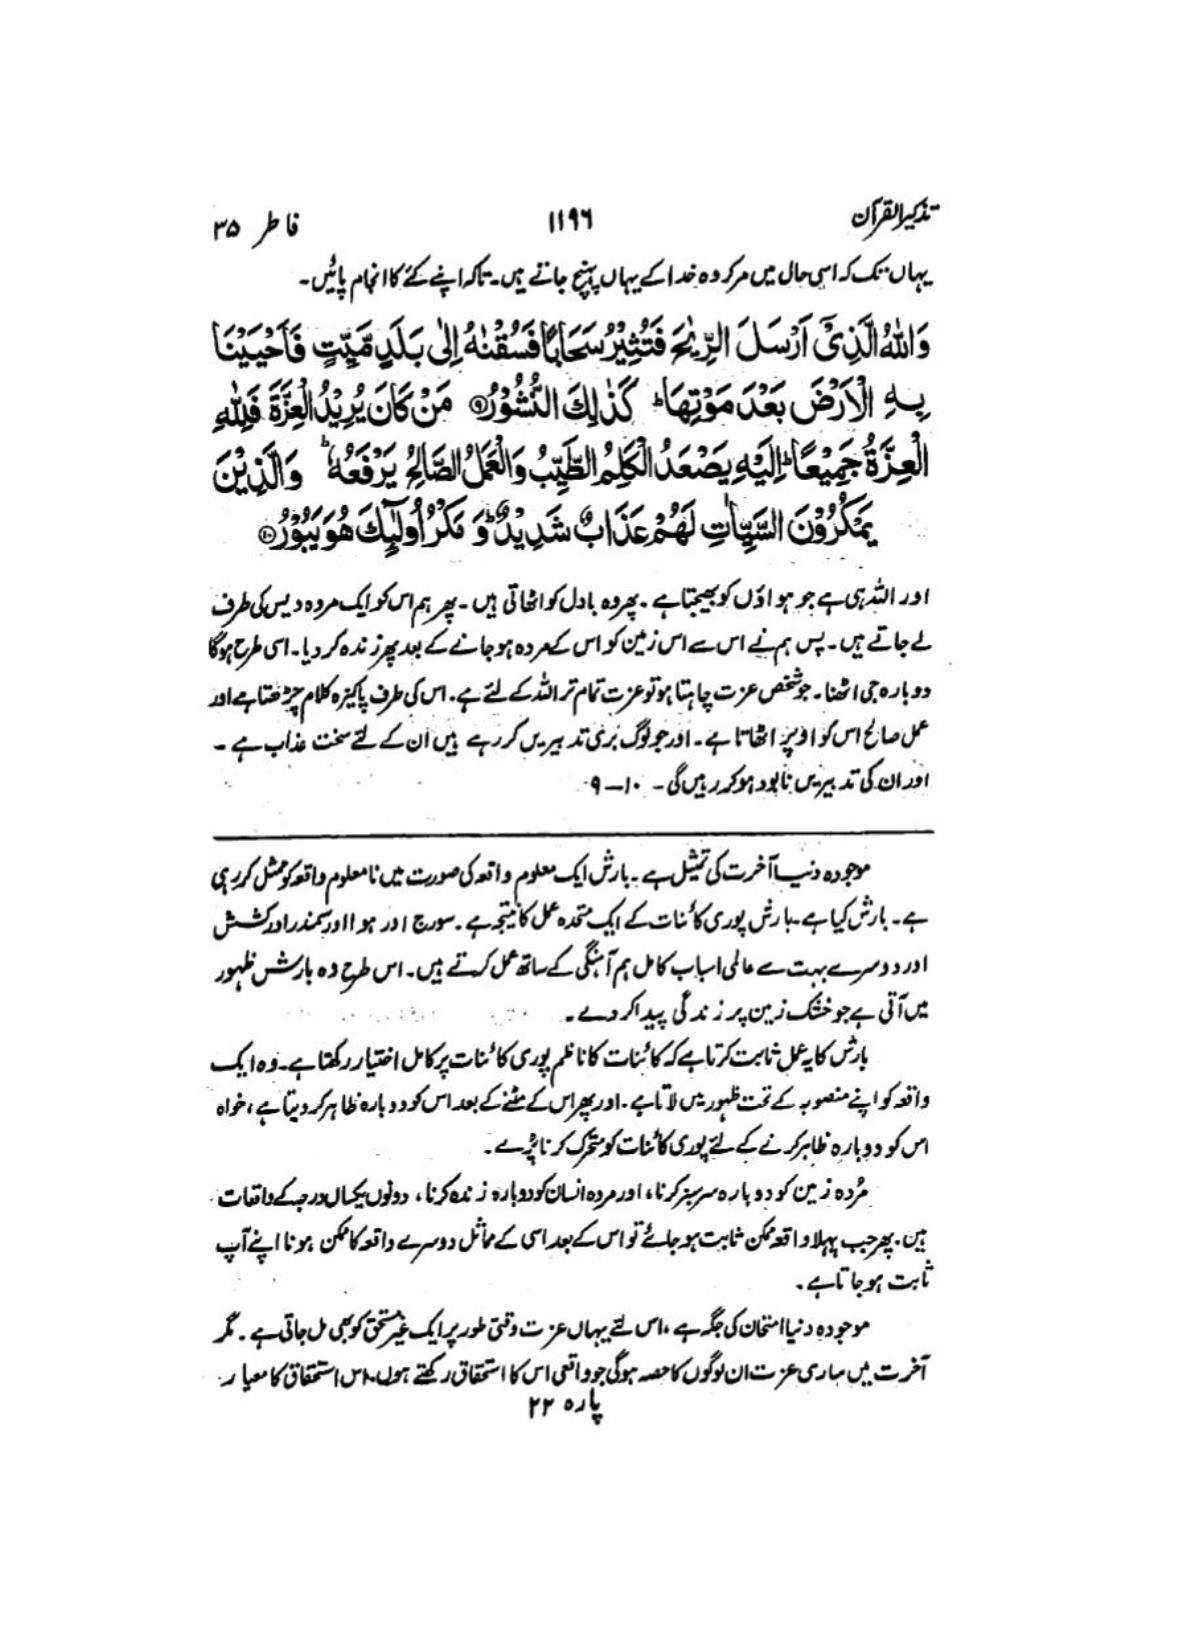 تذکیر القرآن ۱۱۹۶ فاطر ۳۵
یہاں تک کہ اسی حال میں مر کر وہ خدا کے یہاں پہنچ جاتے ہیں۔ تاکہ اپنے کئے کا انجام پائیں۔
وَاللّٰهُ الَّذِیْۤ اَرْسَلَ الرِّیٰحَ فَتُثِیْرُ سَحَابًا فَسُقْنٰهُ اِلٰی بَلَدٍ مَّیِّتٍ فَاَحْیَیْنَا
بِهِ الْاَرْضَ بَعْدَ مَوْتِهَا ؕ كَذٰلِكَ النُّشُوْرُ ۹ مَنْ كَانَ یُرِیْدُ الْعِزَّةَ فَلِلّٰهِ
الْعِزَّةُ جَمِیْعًا ؕ اِلَیْهِ یَصْعَدُ الْكَلِمُ الطَّیِّبُ وَالْعَمَلُ الصَّالِحُ یَرْفَعُهٗ ؕ وَالَّذِیْنَ
یَمْكُرُوْنَ السَّیِّاٰتِ لَهُمْ عَذَابٌ شَدِیْدٌ ؕ وَ مَكْرُ اُولٰٓئِكَ هُوَ یَبُوْرُ ۱۰
اور اللہ ہی ہے جو ہواؤں کو بھیجتا ہے۔ پھر وہ بادل کو اٹھاتی ہیں۔ پھر ہم اس کو ایک مردہ دیس کی طرف
لے جاتے ہیں۔ پس ہم نے اس سے اس زمین کو اس کے مردہ ہو جانے کے بعد پھر زندہ کر دیا۔ اسی طرح ہوگا
دوبارہ جی اٹھنا۔ جو شخص عزت چاہتا ہو تو عزت تمام تر اللہ کے لئے ہے۔ اس کی طرف پاکیزہ کلام چڑھتا ہے اور
عمل صالح اس کو اوپر اٹھاتا ہے۔ اور جو لوگ بری تدبیریں کر رہے ہیں ان کے لئے سخت عذاب ہے۔
اور ان کی تدبیریں نابود ہو کر رہیں گی۔ ۱۰-۹
موجودہ دنیا آخرت کی تمثیل ہے۔ بارش ایک معلوم واقعہ کی صورت میں نا معلوم واقعہ کو ممثل کر رہی
ہے۔ بارش کیا ہے۔ بارش پوری کائنات کے ایک متحدہ عمل کا نتیجہ ہے۔ سورج اور ہوا اور سمندر اور کشش
اور دوسرے بہت سے عالمی اسباب کامل ہم آہنگی کے ساتھ عمل کرتے ہیں۔ اس طرح وہ بارش ظہور
میں آتی ہے جو خشک زمین پر زندگی پیدا کر دے۔
بارش کا یہ عمل ثابت کرتا ہے کہ کائنات کا ناظم پوری کائنات پر کامل اختیار رکھتا ہے۔ وہ ایک
واقعہ کو اپنے منصوبہ کے تحت ظہور میں لاتا ہے۔ اور پھر اس کے مٹنے کے بعد اس کو دوبارہ ظاہر کر دیتا ہے، خواہ
اس کو دوبارہ ظاہر کرنے کے لئے پوری کائنات کو متحرک کرنا پڑے۔
مُردہ زمین کو دوبارہ سرسبز کرنا، اور مردہ انسان کو دوبارہ زندہ کرنا، دونوں یکساں درجہ کے واقعات
ہیں۔ پھر جب پہلا واقعہ ممکن ثابت ہو جائے تو اس کے بعد اسی کے مماثل دوسرے واقعہ کا ممکن ہونا اپنے آپ
ثابت ہو جاتا ہے۔
موجودہ دنیا امتحان کی جگہ ہے، اس لئے یہاں عزت وقتی طور پر ایک غیر مستحق کو بھی مل جاتی ہے۔ مگر
آخرت میں ساری عزت ان لوگوں کا حصہ ہوگی جو واقعی اس کا استحقاق رکھتے ہوں۔ اس استحقاق کا معیار
پارہ ۲۲